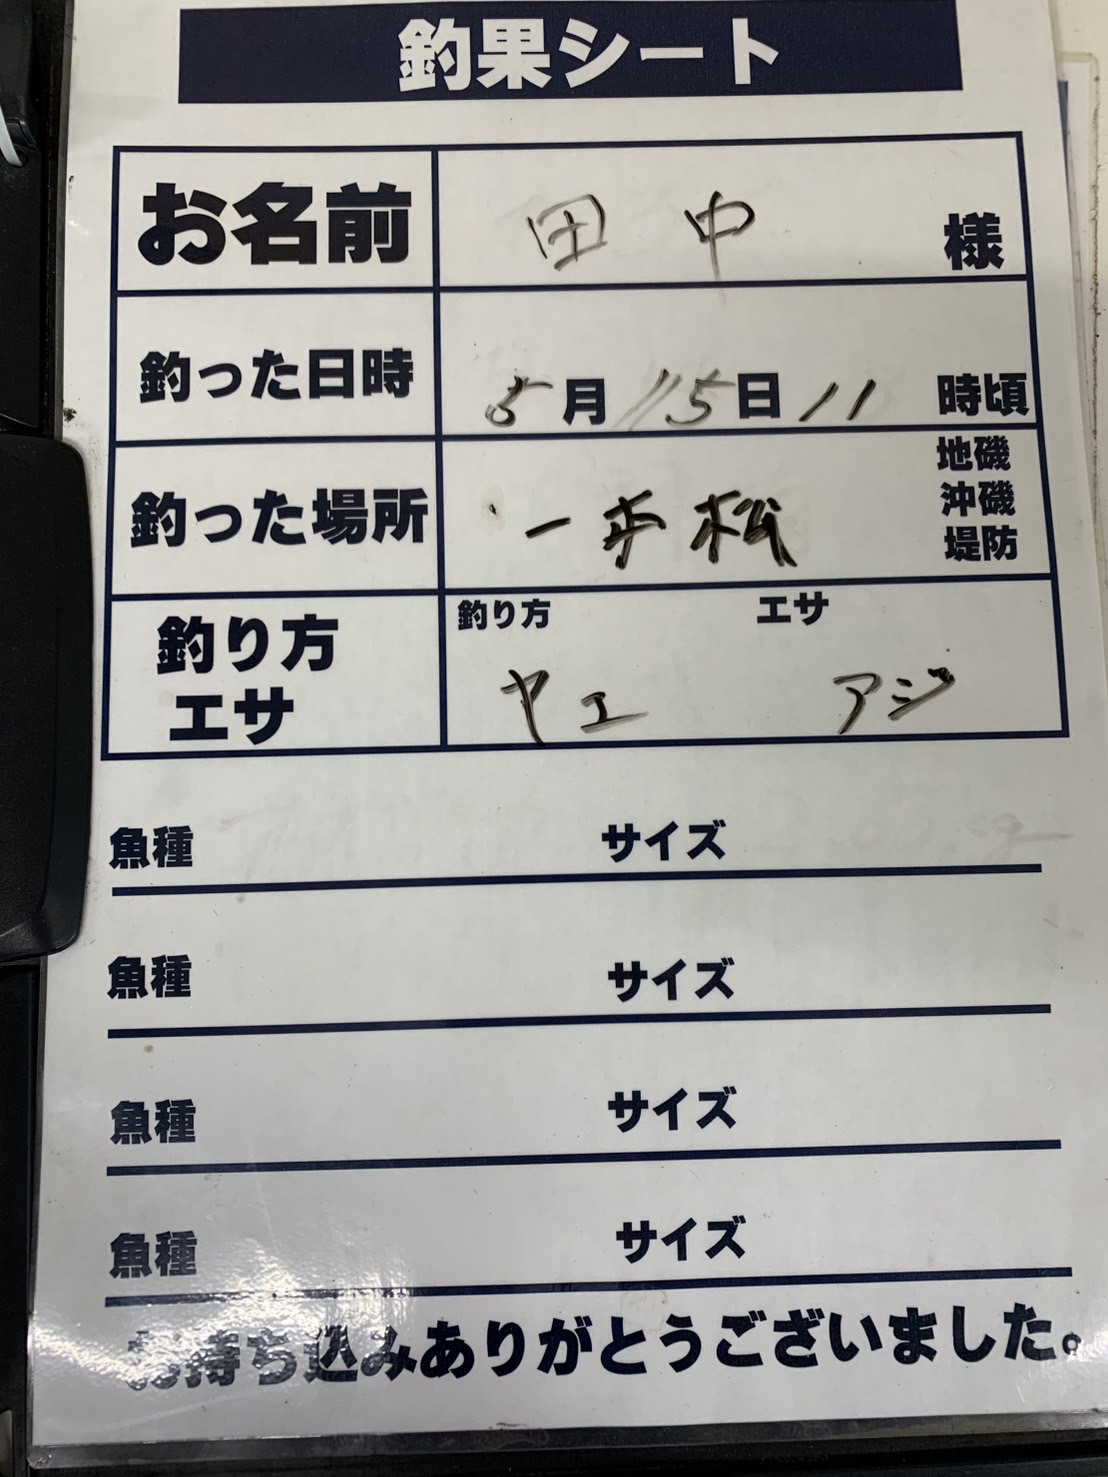 釣果シート
お名前 田中 様
釣った日時 5月15日11時頃
釣った場所 一本松 地磯
沖磯
堤防
釣り方 エサ
釣り方
エサ
ヤエ アジ
魚種 サイズ
魚種 サイズ
魚種 サイズ
魚種 サイズ
お持ち込みありがとうございました。